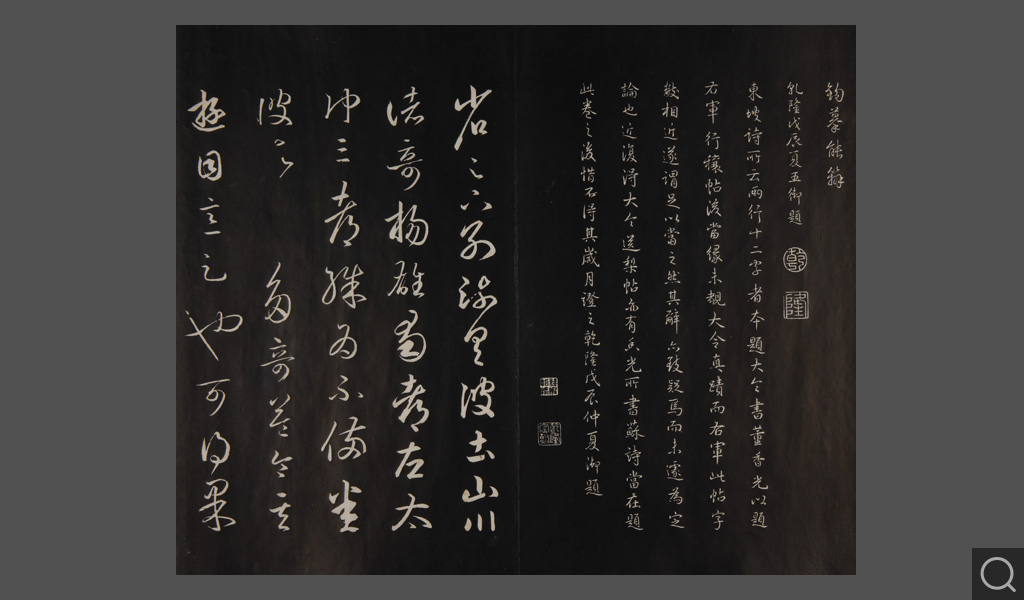 鉤摹能繇
乾隆戊辰夏五御題
乾
隆
東坡詩所云兩行十二字者本題大令書董香光以題
右軍行穰帖後當緣未覩大令真蹟而右軍此帖字
較相近遂謂足以當之然其辭亦致疑焉而未遽為定
論也近復得大令送梨帖亦有香光所書蘇詩當在題
此卷之後惜不得其歲月證之乾隆戊辰仲夏御題
省足下別疏具彼土山川
諸奇揚雄蜀都左太
沖三都殊為不備悉
彼故多奇益令其
遊目意足也可得果